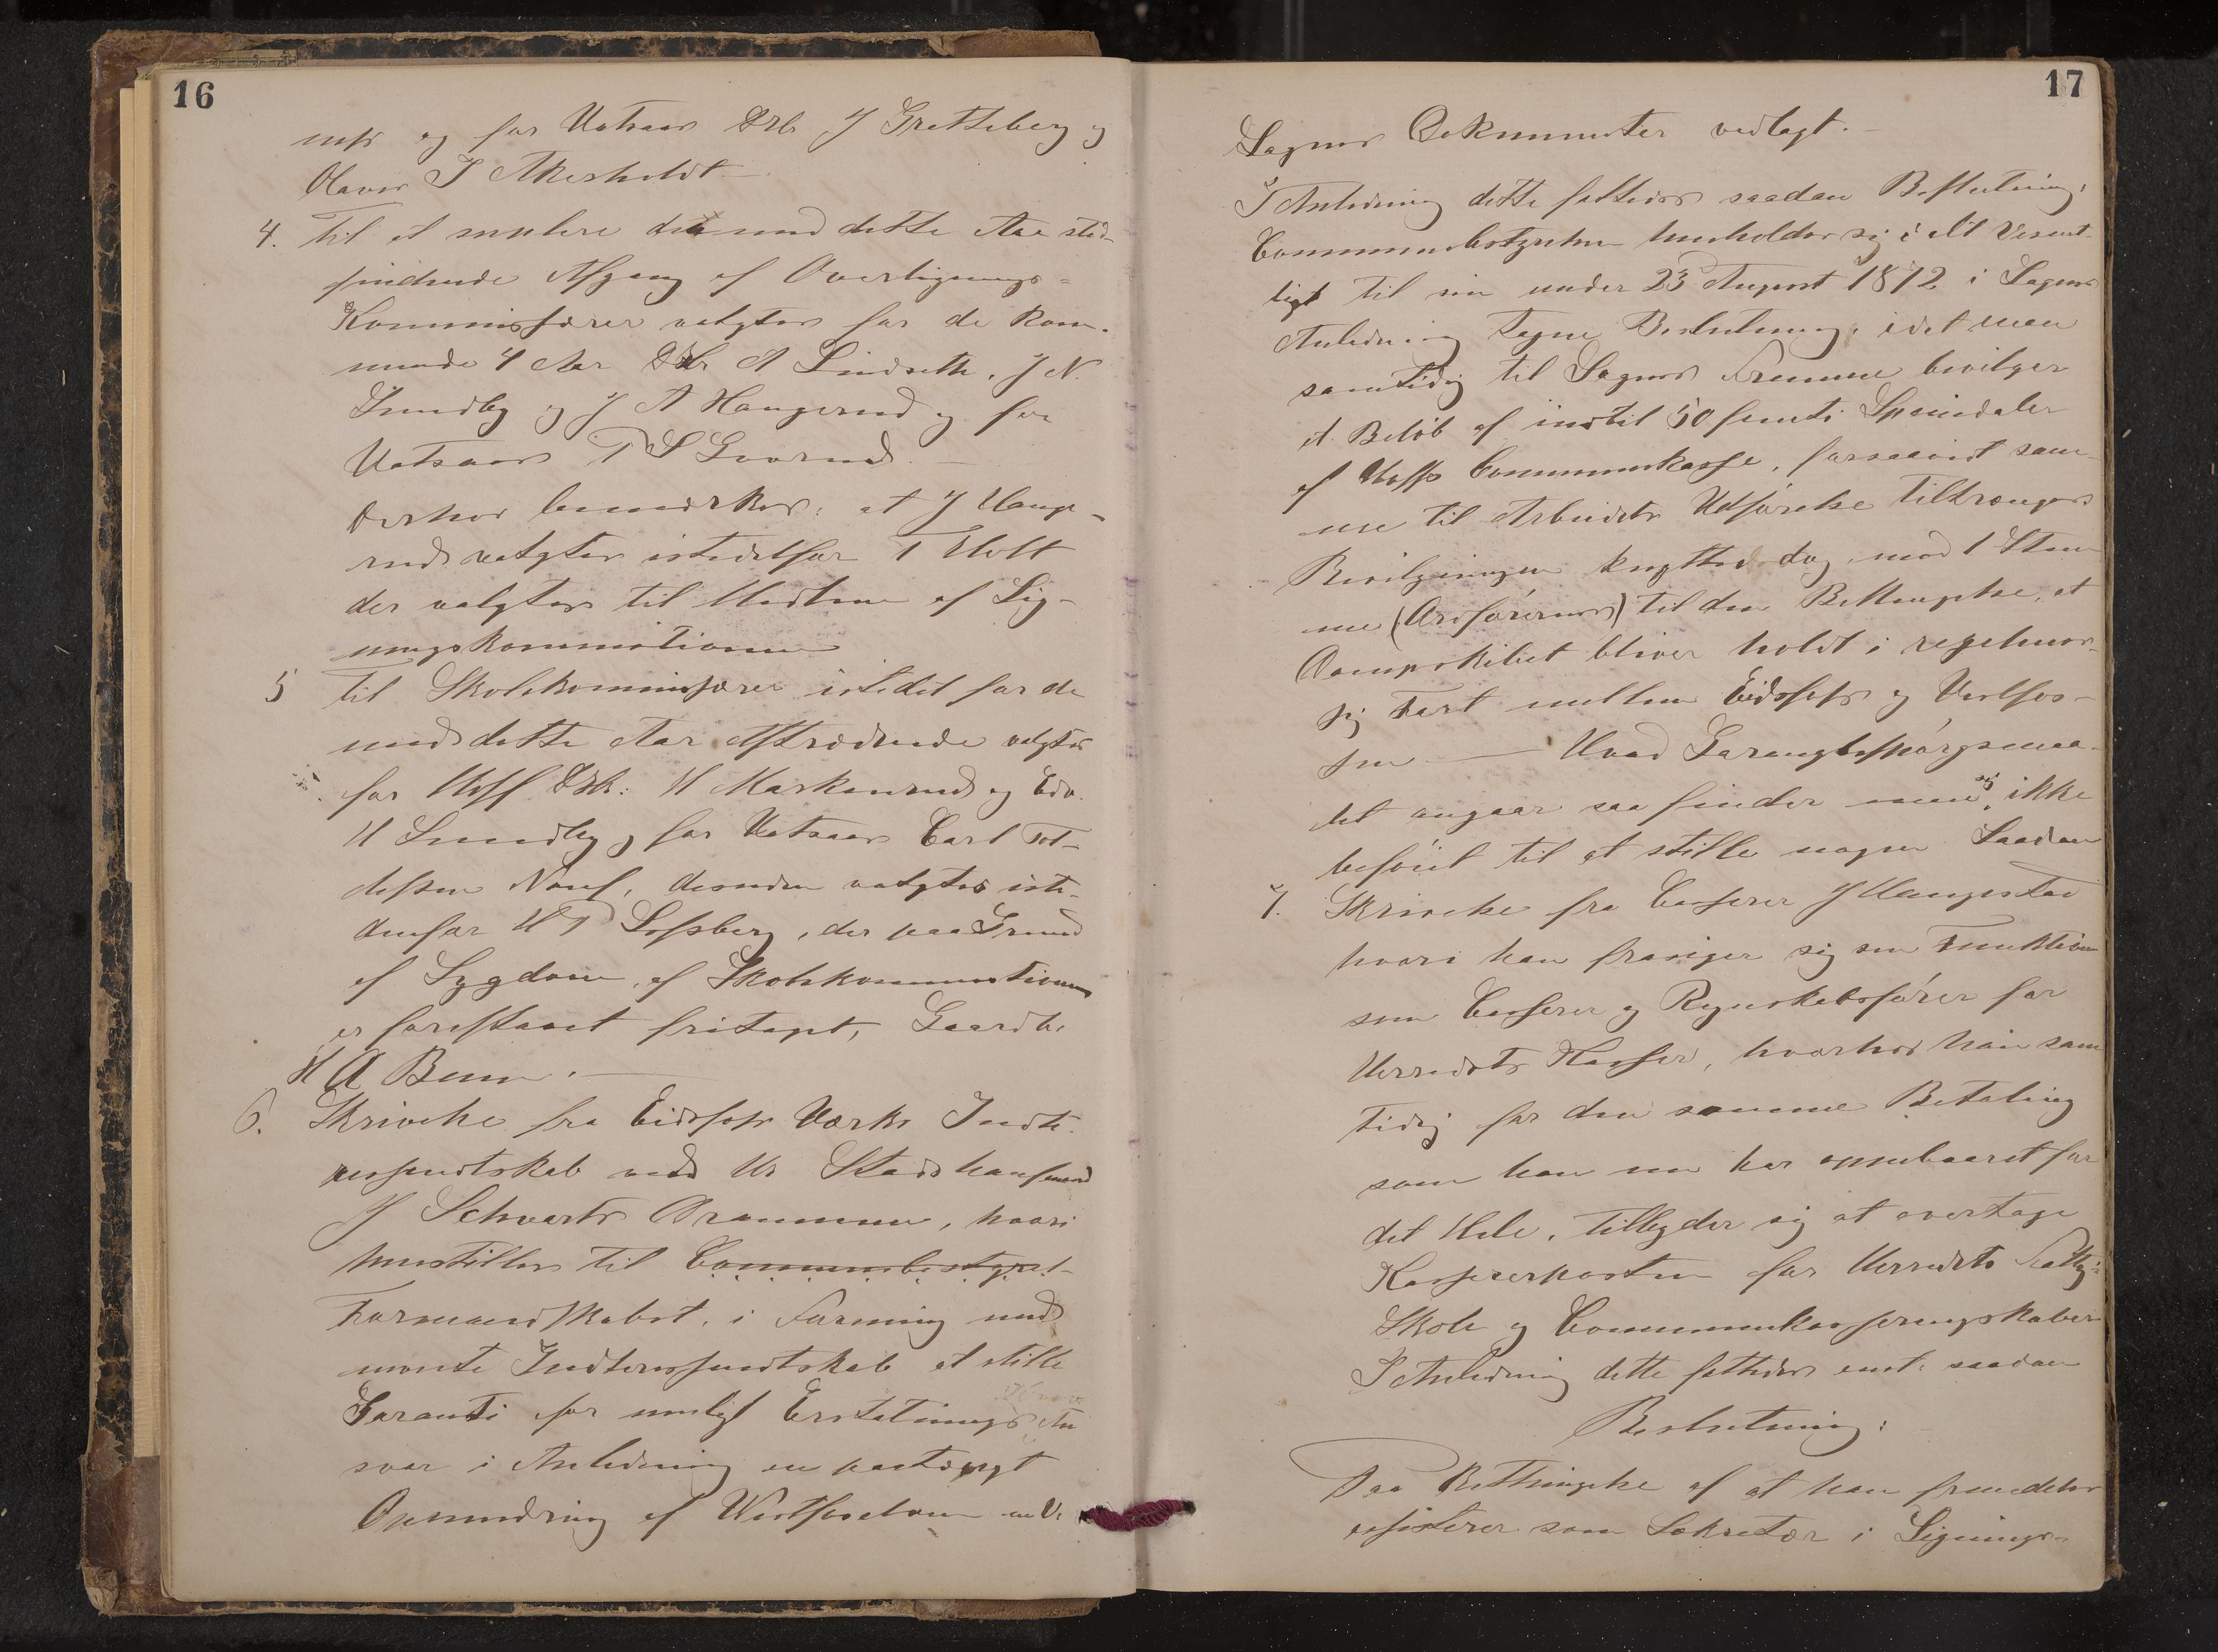 16
og for Vatnaas J Gretteberg og
Olaves J Akerholdt
4. Til at suplere den med dette Aar sted-
findende Afgang af Overlignings-
Kommissærer valgtes for de kom-
mende 4 Aar A Lindseth, J N.
Sundby og J A Haugerud og for
Vatnaas T S Gvorud.
Derhos bemærkes: at J Hauge-
rud valgtes istedetfor T Hoff
der valgtes til Medlem af Lig-
ningskommisionen
5 Til Skolekommissærer istedet for de
med dette Aar Aftrædende valgtes
for Hoff H Markerud og Edv.
H Sundby og for Vatnaas Carl Tol-
lefsen desuden valgtes iste-
denfor H P Lofsberg, der paa Grund
af Sygdom, af Skolekommisionen
er foreslaaet fritaget, Gaardbr
H A Benn.
6. Skrivelse fra Eidsfos Værks Indte-
ressentskab ved Hr Stadshauptmand
J Schwartz Drammen, hvori
henstilles til Communebestyrel-
Formandskabet, i Forening med
nævnte Indteressentskab at stille
Garanti for muligt Erstatnings An
svar i Anledning en paatængt
Opmudring af Westfoselven
17
Sagens Dokumenter vedlagt.
I Anledning dette fattedes saadan Beslutning:
Communebestyrelsen henholder sig i alt Vesent-
ligt til sin under 23 August 1872 i Sagens
Anledning tagne Beslutning, idet man
samtidig til Sagens Fremme bevilger
et Beløb af indtil 50 femti Speciedaler
af Hoffs Communekasse, forsaavidt sam-
me til Arbeidets Udførelse tiltrænges
Bevilgningen knyttes dog mod 1 Stem
me (Ordførerens) til den Betingelse, at
Dampskibet bliver holdt i regelmæs-
sig Fart mellem Eidsfos og Vestfos-
sen — Hvad Garantispørgsmaa-
let angaar saa finder man sig ikke
beføiet til at stille nogen Saadan
7. Skrivelse fra Casserer J Haugestad
hvori han frasiger sig sin Funktion
som Casserer og Regnskabsfører for
Herredets Kasser, hvorhos han sam
tidig for den samme Betaling
som han nu har oppebaaret for
det Hele, tilbyder sig at overtage
Kassererposten for Herredets Fattig-
Skole og Communekasseregnskaber
I Anledning dette fattedes enst. saadan
Beslutning:
Paa Betingelse af at han fremdeles
assisterer som Sekretær i Lignings-